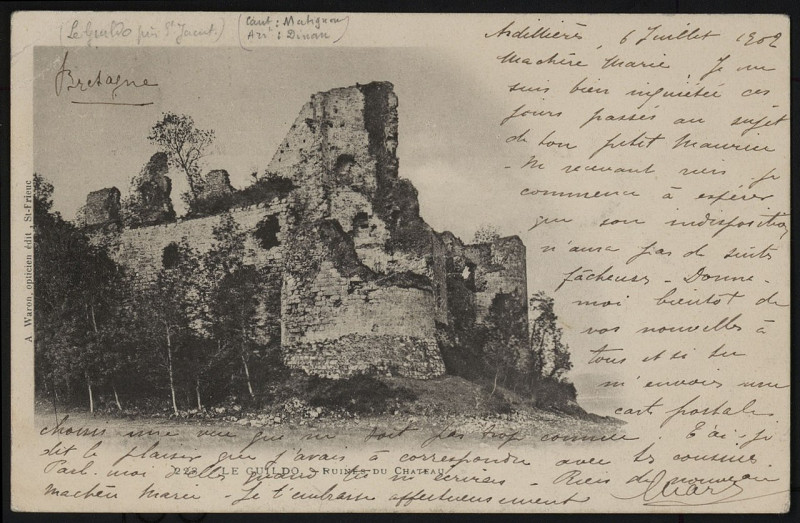 (Le Guildo près St Jacut)
(Cant : Matignon
Arr : Dinan)
Bretagne
Ardillières, 6 Juillet 1902
Ma chère Marie, Je me
suis bien inquiétée ces
jours passés au sujet
de ton petit Maurice
- Ne recevant rien je
commence à espérer
que son indisposition
n'aura pas de suites
fâcheuses - Donne-
moi bientôt de
vos nouvelles à
tous et si tu
m'envoies une
carte postale
choisis une vue qui ne soit pas trop connue. T'ai-je
dit le plaisir que j'avais à correspondre avec tes cousines
Parle-moi d'elles quand tu m'écriras - Rien de nouveau
ma chère Marie - Je t'embrasse affectueusement
A Waron, opticien édit, St-Brieuc
228 LE GUILDO - RUINES DU CHATEAU